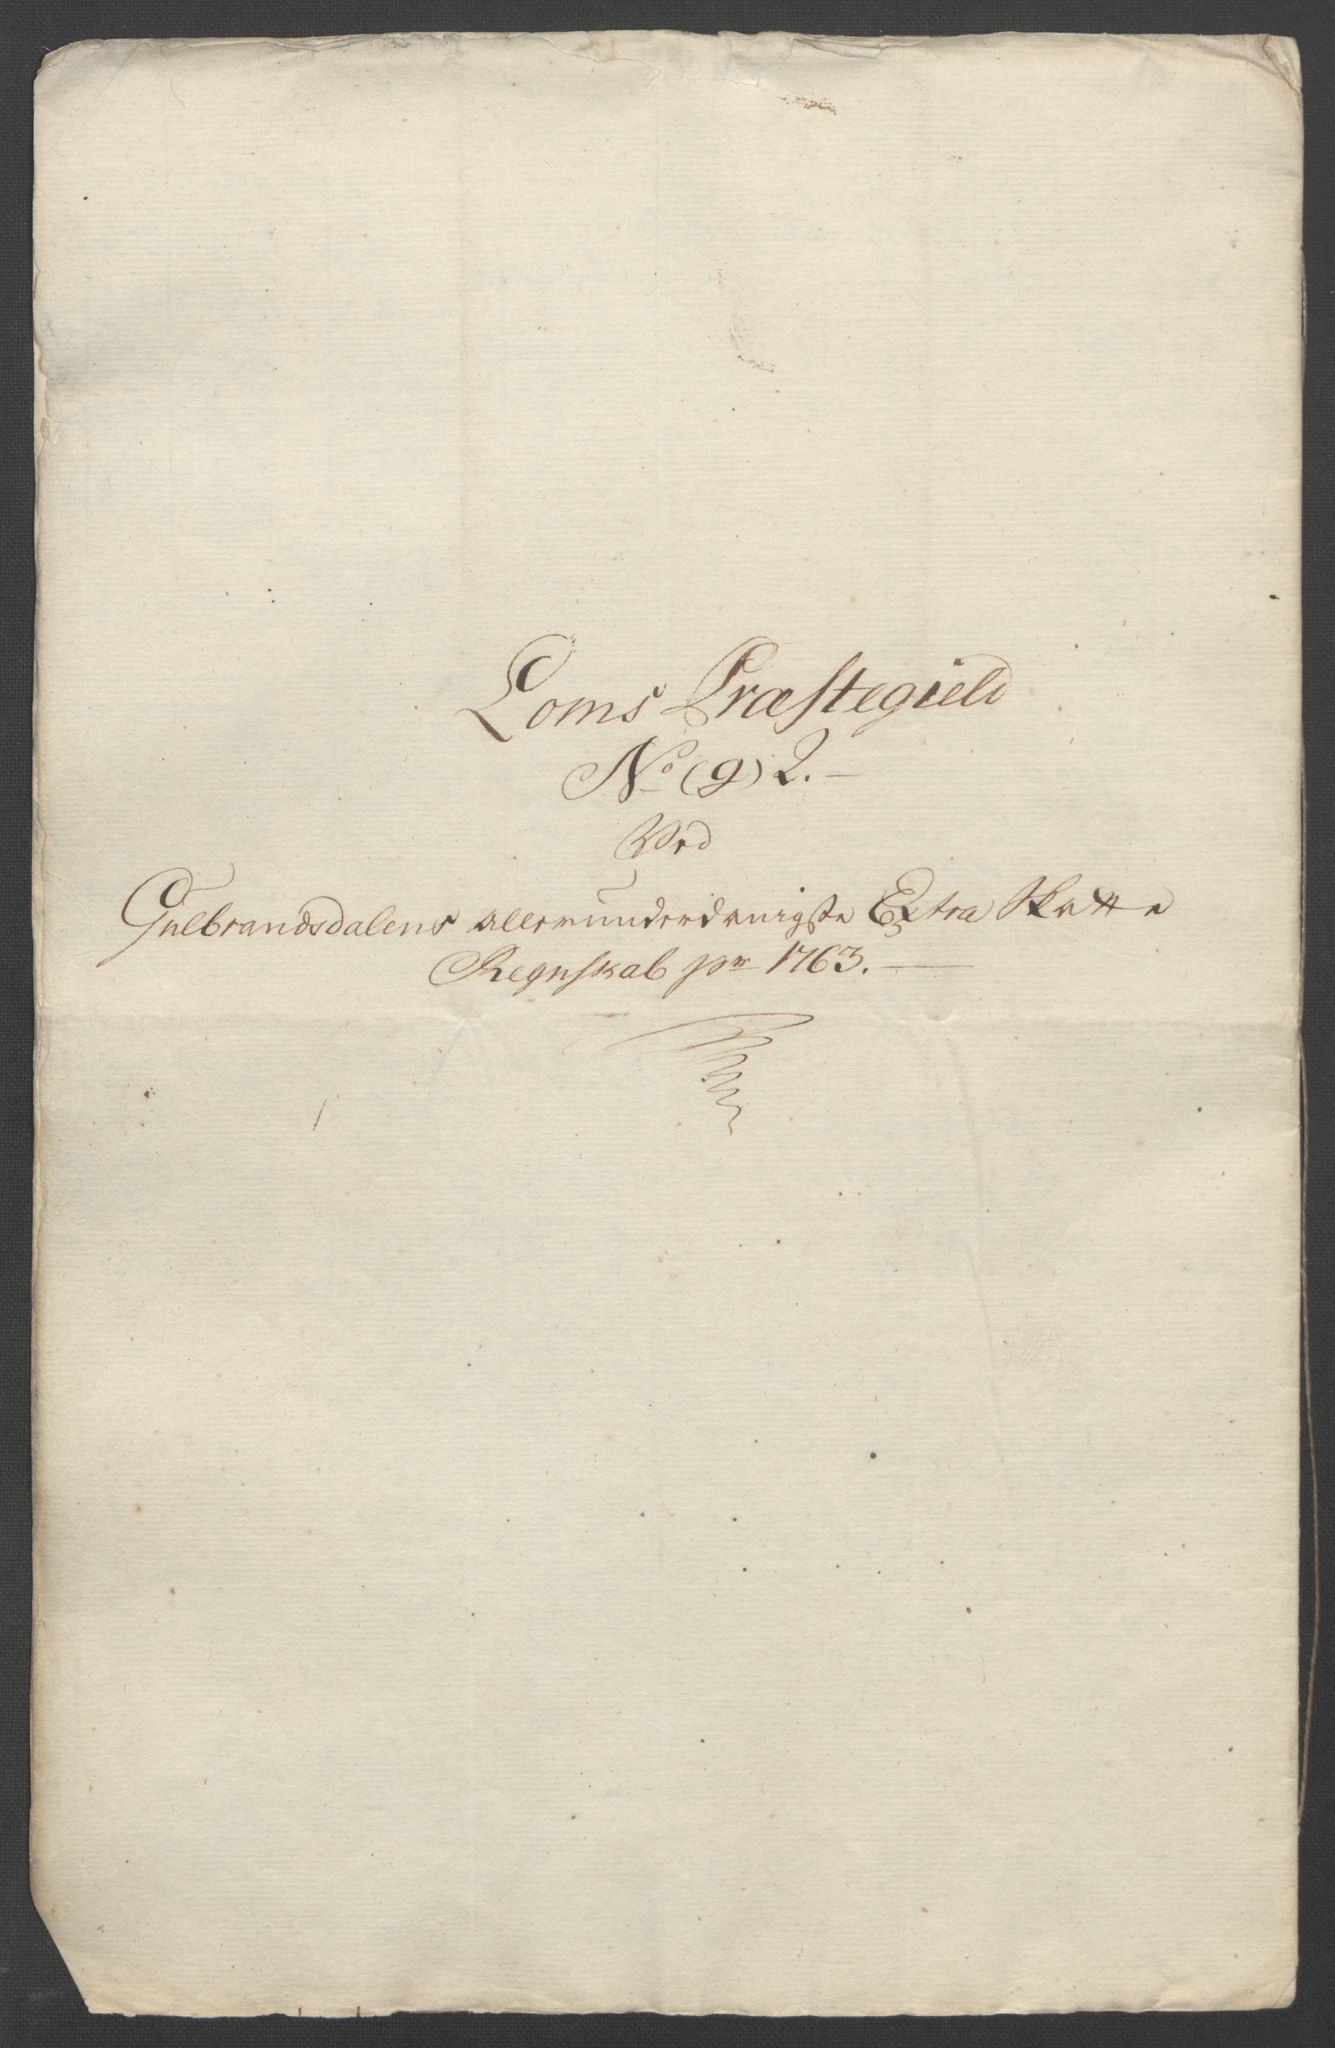 Loms Præstegield
No (9) 2.
Ved
Gulbrandsdalens allerunderdanigste Extra Skatte
Regnskab pr 1763.